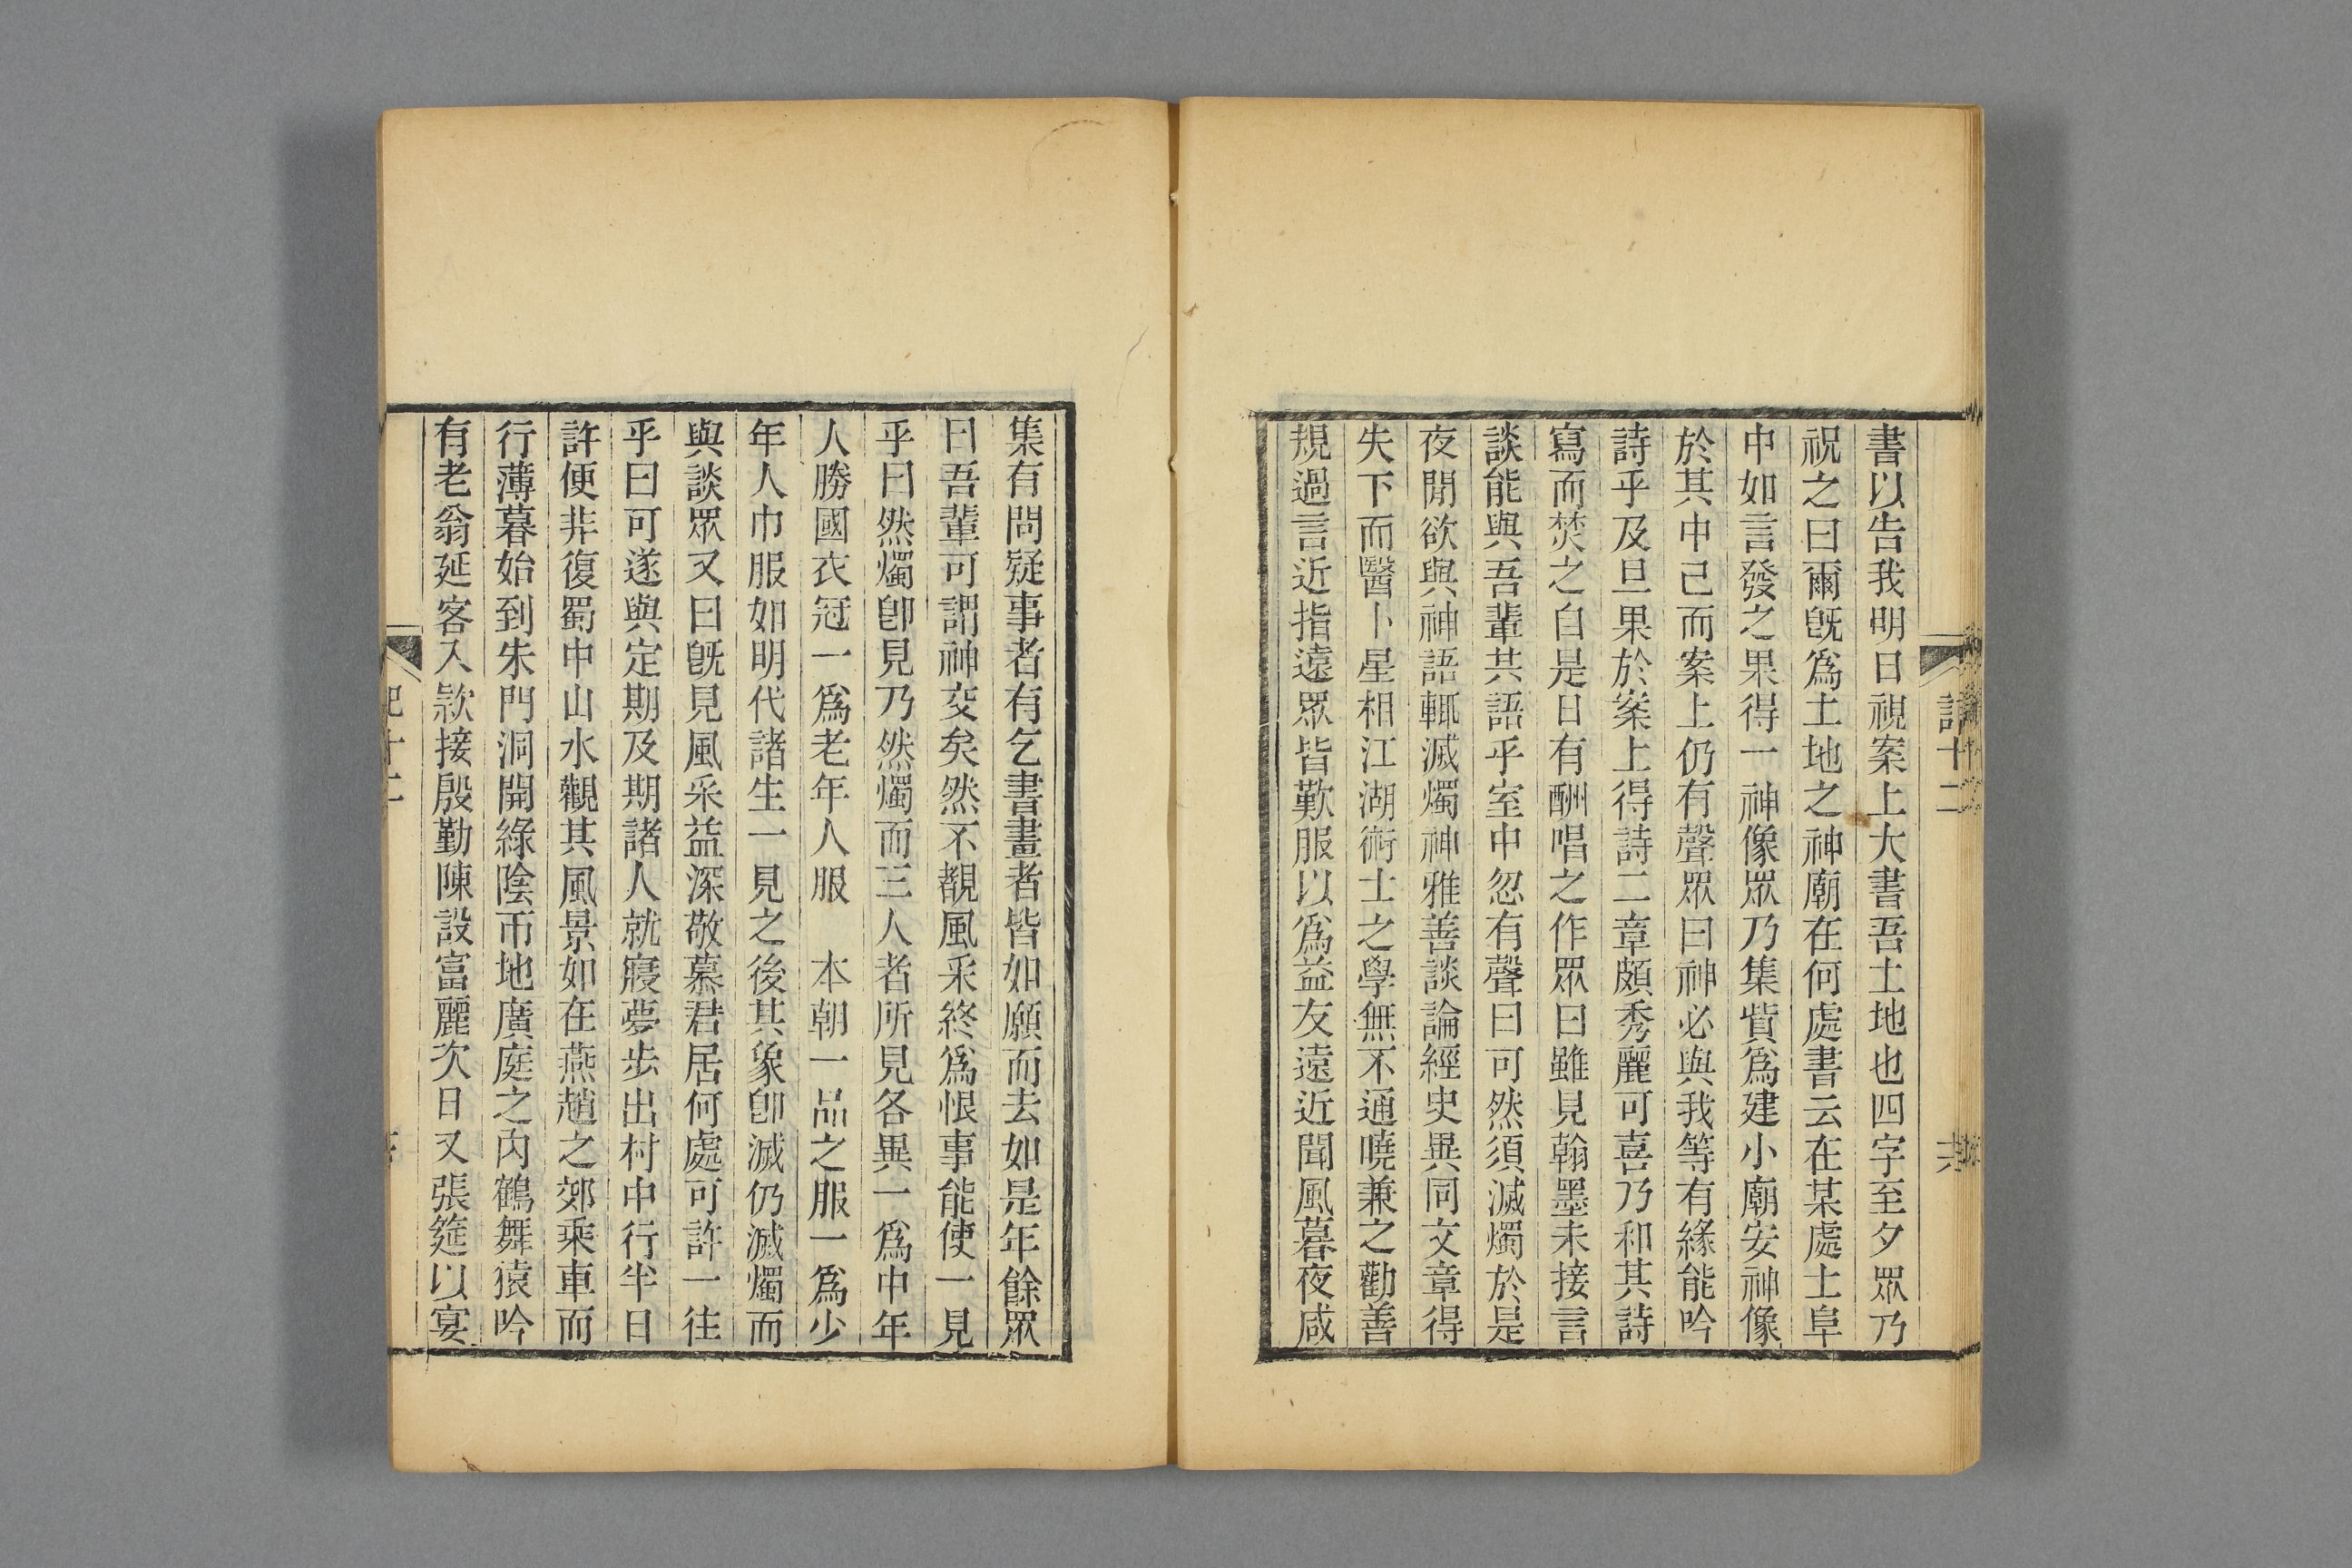 書以告我明日視案上大書吾土地也四字至夕眾乃
祝之曰爾旣爲土地之神廟在何處書云在某處土阜
中如言發之果得一神像眾乃集貲爲建小廟安神像
於其中已而案上仍有聲眾曰神必與我等有緣能吟
詩乎及旦果於案上得詩二章頗秀麗可喜乃和其詩
寫而焚之自是日有酬唱之作眾曰雖見翰墨未接言
談能與吾輩共語乎室中忽有聲曰可然須滅燭於是
夜閒欲與神語輒滅燭神雅善談論經史異同文章得
失下而醫卜星相江湖術士之學無不通曉兼之勸善
規過言近指遠眾皆歎服以爲益友遠近聞風暮夜咸
集有問疑事者有乞書畫者皆如願而去如是年餘眾
曰吾輩可謂神交矣然不覩風采終爲恨事能使一見
乎曰然燭卽見乃然燭而三人者所見各異一爲中年
人勝國衣冠一爲老年人服 本朝一品之服一爲少
年人巾服如明代諸生一見之後其象卽滅仍滅燭而
與談眾又曰旣見風采益深敬慕君居何處可許一往
乎曰可遂與定期及期諸人就寢夢步出村中行半日
許便非復蜀中山水觀其風景如在燕趙之郊乘車而
行薄暮始到朱門洞開綠陰帀地廣庭之內鶴舞猿吟
有老翁延客入款接殷勤陳設富麗次日又張筵以宴